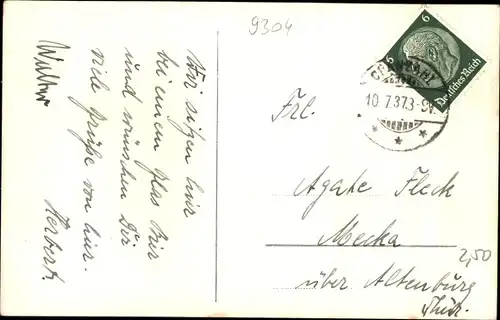 9304
Wir sitzen hier
bei einem Glas Bier
und wünschen Dir
viele Grüße von hier.
Herbert
Walter
6 6
Deutsches Reich
10.7.37.
Frl.
Agate Fleck
Mecka
über Altenburg
Thür.
2,50